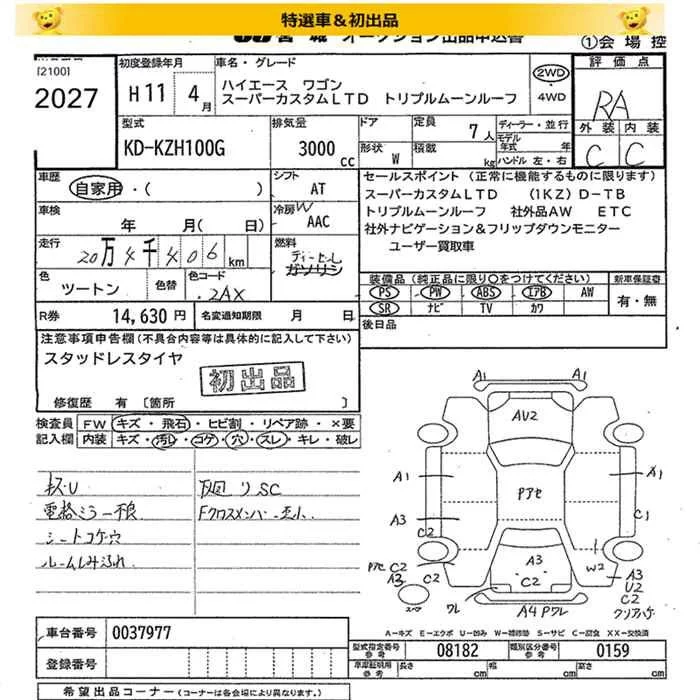 特選車＆初出品
JU 宮城 オークション出品申込書
①会場控
[2100]
2027
初度登録年月
H11 4月
車名・グレード
ハイエース ワゴン
スーパーカスタムLTD トリプルムーンルーフ
2WD
・
4WD
評価点
RA
外装 内装
C C
型式
KD-KZH100G
排気量
3000 cc
ドア
形状 W
定員 7人
積載 kg
ディーラー・並行
モデル
年式 年
ハンドル 左・右
車歴
自家用・( )
シフト
AT
車検
年 月( 日)
冷房W
AAC
走行
20万4千406 km
燃料
ディーゼル
ガソリン
色
ツートン
色替
色コード
2AX
R券 14,630 円
名変通知期限 月 日
セールスポイント (正常に機能するものに限ります)
スーパーカスタムLTD (1KZ) D-TB
トリプルムーンルーフ 社外品AW ETC
社外ナビゲーション＆フリップダウンモニター
ユーザー買取車
装備品(純正品に限り○をつけてください)
PS PW ABS エアB AW
SR ナビ TV カワ
新車保証書
有・無
後日品
注意事項申告欄(不具合内容等は具体的に記入して下さい)
スタッドレスタイヤ
初出品
修復歴 有 [箇所 ]
検査員
記入欄
FW キズ・飛石・ヒビ割・リペア跡・×要
内装 キズ・汚れ・コゲ・穴・スレ・キレ・破レ
キズ・U
電格ミラー不良
シートコゲ穴
ルームしみ汚れ
下廻りSC
Fクロスメンバー歪小
A1
A1
AV2
A1
A1
Pアセ
A3
C2
C1
W2
A3
C2
PアセC2
A3
C2
スペア
ワレ
A4 Pワレ
A3
U2
C2
クリアハゲ
A－キズ E－エクボ U－凹み W－補修跡 S－サビ C－腐食 XX－交換済
車台番号 0037977
登録番号
型式指定番号
参考
08182
類別区分番号
参考
0159
車庫証明用
参考
長さ cm
幅 cm
高さ cm
希望出品コーナー(コーナーは各会場により異なります。)